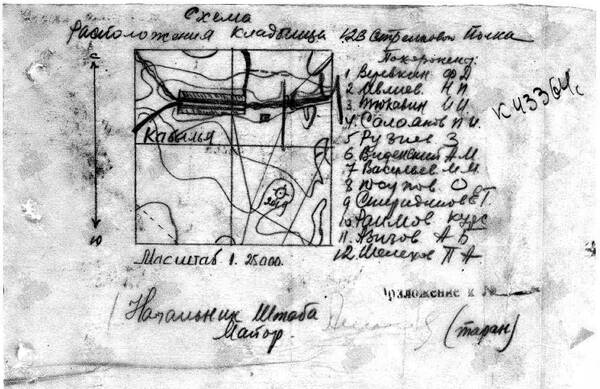 Схема
Расположения кладбища 123 Стрелкового Полка
С
Похоронены:
1 Веревкин Ф Д
2 Ивлиев Н П
3 Тюкавин И И
4 Салоянов П И.
5 Рузиев З
6 Виденский А М
7 Васильев М М
8 Юсупов О
9 Спиридионов Е Г.
10 Раимов Курб
11. Азизов А Б
12 Шелехов П А
К 43364с
Кабылья
204.9
Ю
Масштаб 1: 25000.
Приложение к №
Начальник Штаба
Майор.
(таран)